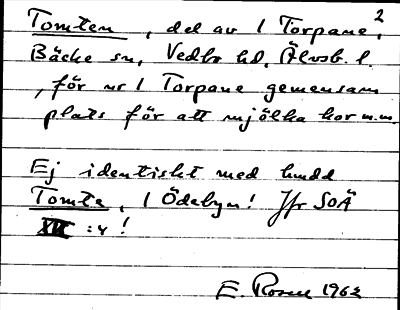 2
Tomten, del av 1 Torpane,
Bäcke sn, Vedbo hd, Älvsb. l.
, för nr 1 Torpane gemensam
plats för att mjölka kor m.m.
Ej identiskt med hmdd
Tomte, 1 Ödebyn! Jfr SOÄ
XIII :4!
E. Rosell 1962